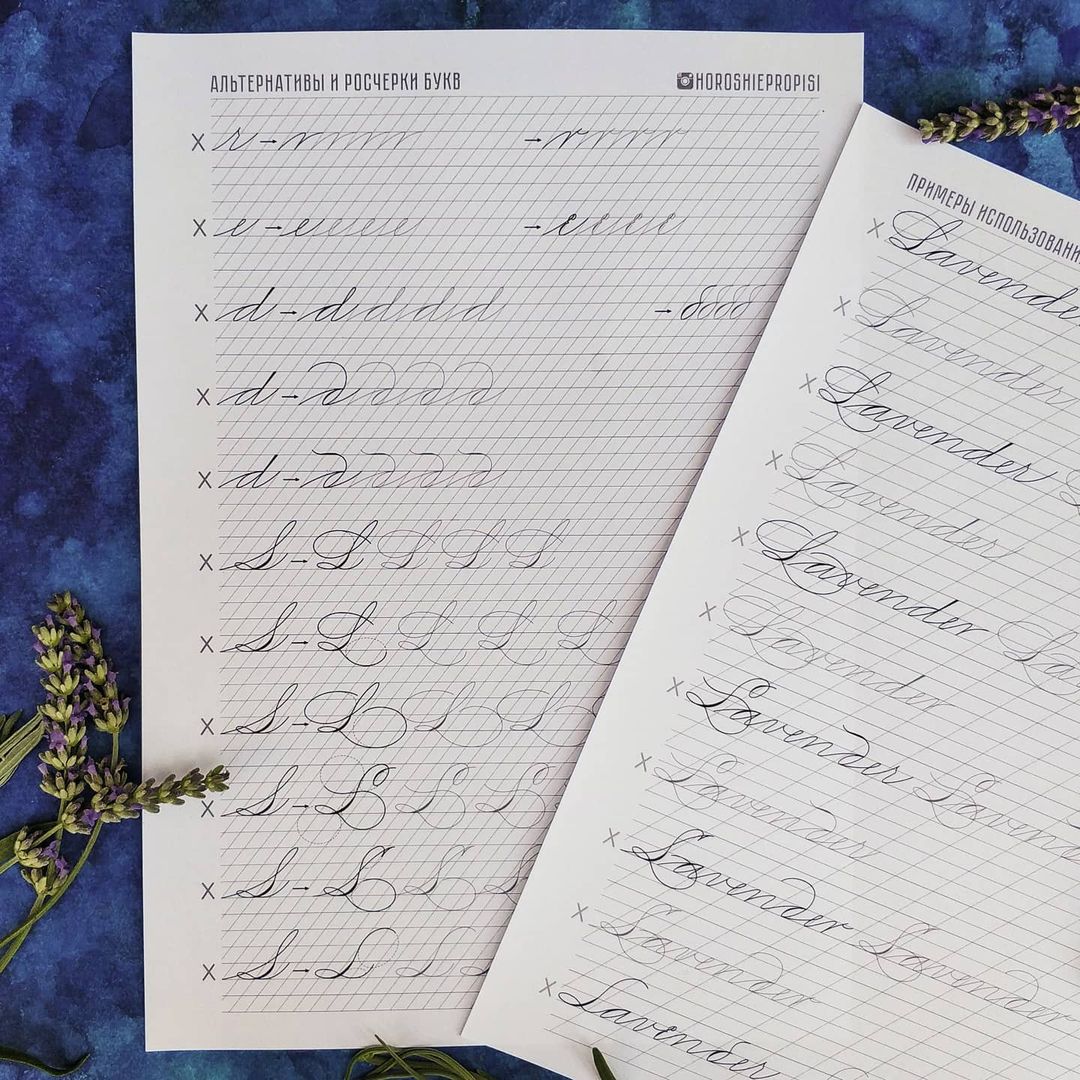 АЛЬТЕРНАТИВЫ И РОСЧЕРКИ БУКВ HOROSHIEPROPISI
X r → r r r r r → r r r r r
X e → e e e e e → e e e e e
X d → d d d d d → d d d d
X d → d d d d d
X d → d d d d d
X L → L L L L
X L → L L L L
X L → L L L
X L → L L L
X L → L L L
X L → L L L
ПРИМЕРЫ ИСПОЛЬЗОВАНИ
X Lavender
X Lavender
X Lavender L
X Lavender
X Lavender La
X Lavender
X Lavender Laven
X Lavender
X Lavender Lavender
X Lavender
X Lavender